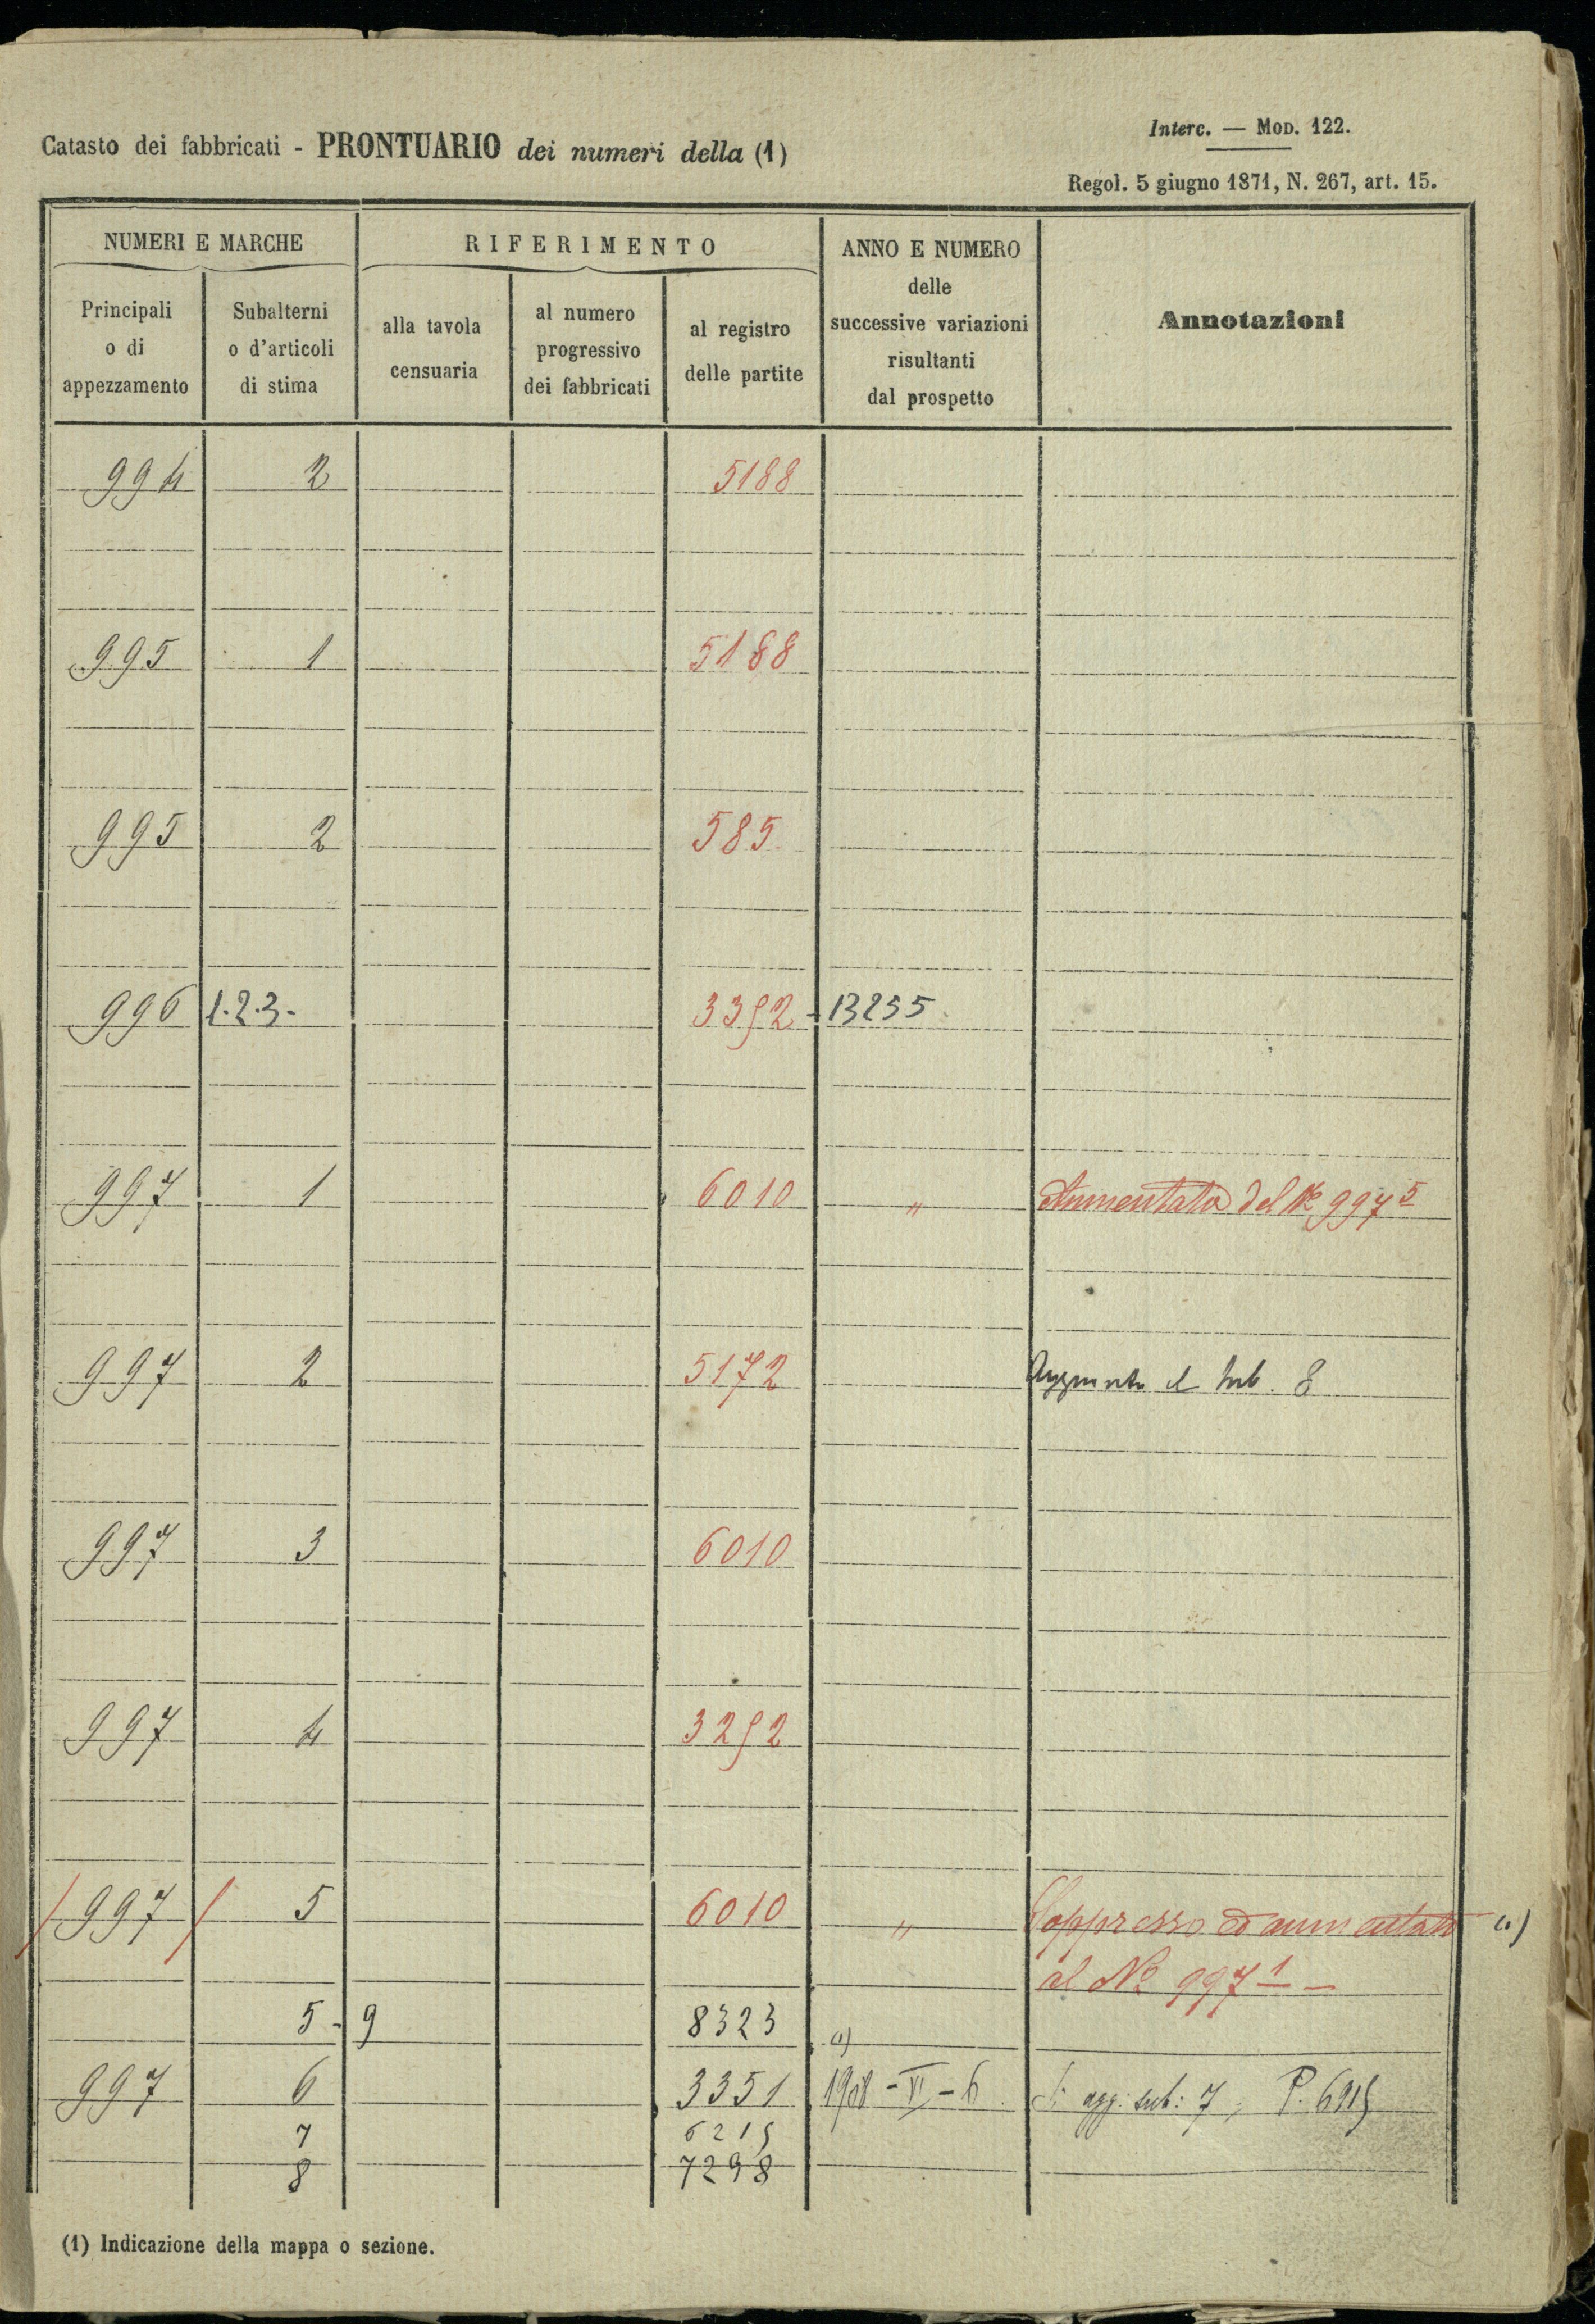 Interc. — MOD. 122.
Catasto dei fabbricati - PRONTUARIO dei numeri della (1)
Regol. 5 giugno 1871, N. 267, art. 15.
NUMERI E MARCHE
RIFERIMENTO
ANNO E NUMERO
delle
successive variazioni
risultanti
dal prospetto
Annotazioni
Principali
o di
appezzamento
Subalterni
o d'articoli
di stima
alla tavola
censuaria
al numero
progressivo
dei fabbricati
al registro
delle partite
994 2 5188
995 1 5188
995 2 585
996 1.2.3- 3392 - 13255
997 1 6010 " Aumentato del N° 997 5
997 2 5172 Aggiunto il sub. 8
997 3 6010
997 4 3292
997 5 6010 " Soppresso ed aumentato (1)
al N° 997 1 —
5 - 9 8323 (1)
997 6 3351 - VI - 6 S: agg: sub: 7, P.
7
8 7298
(1) Indicazione della mappa o sezione.